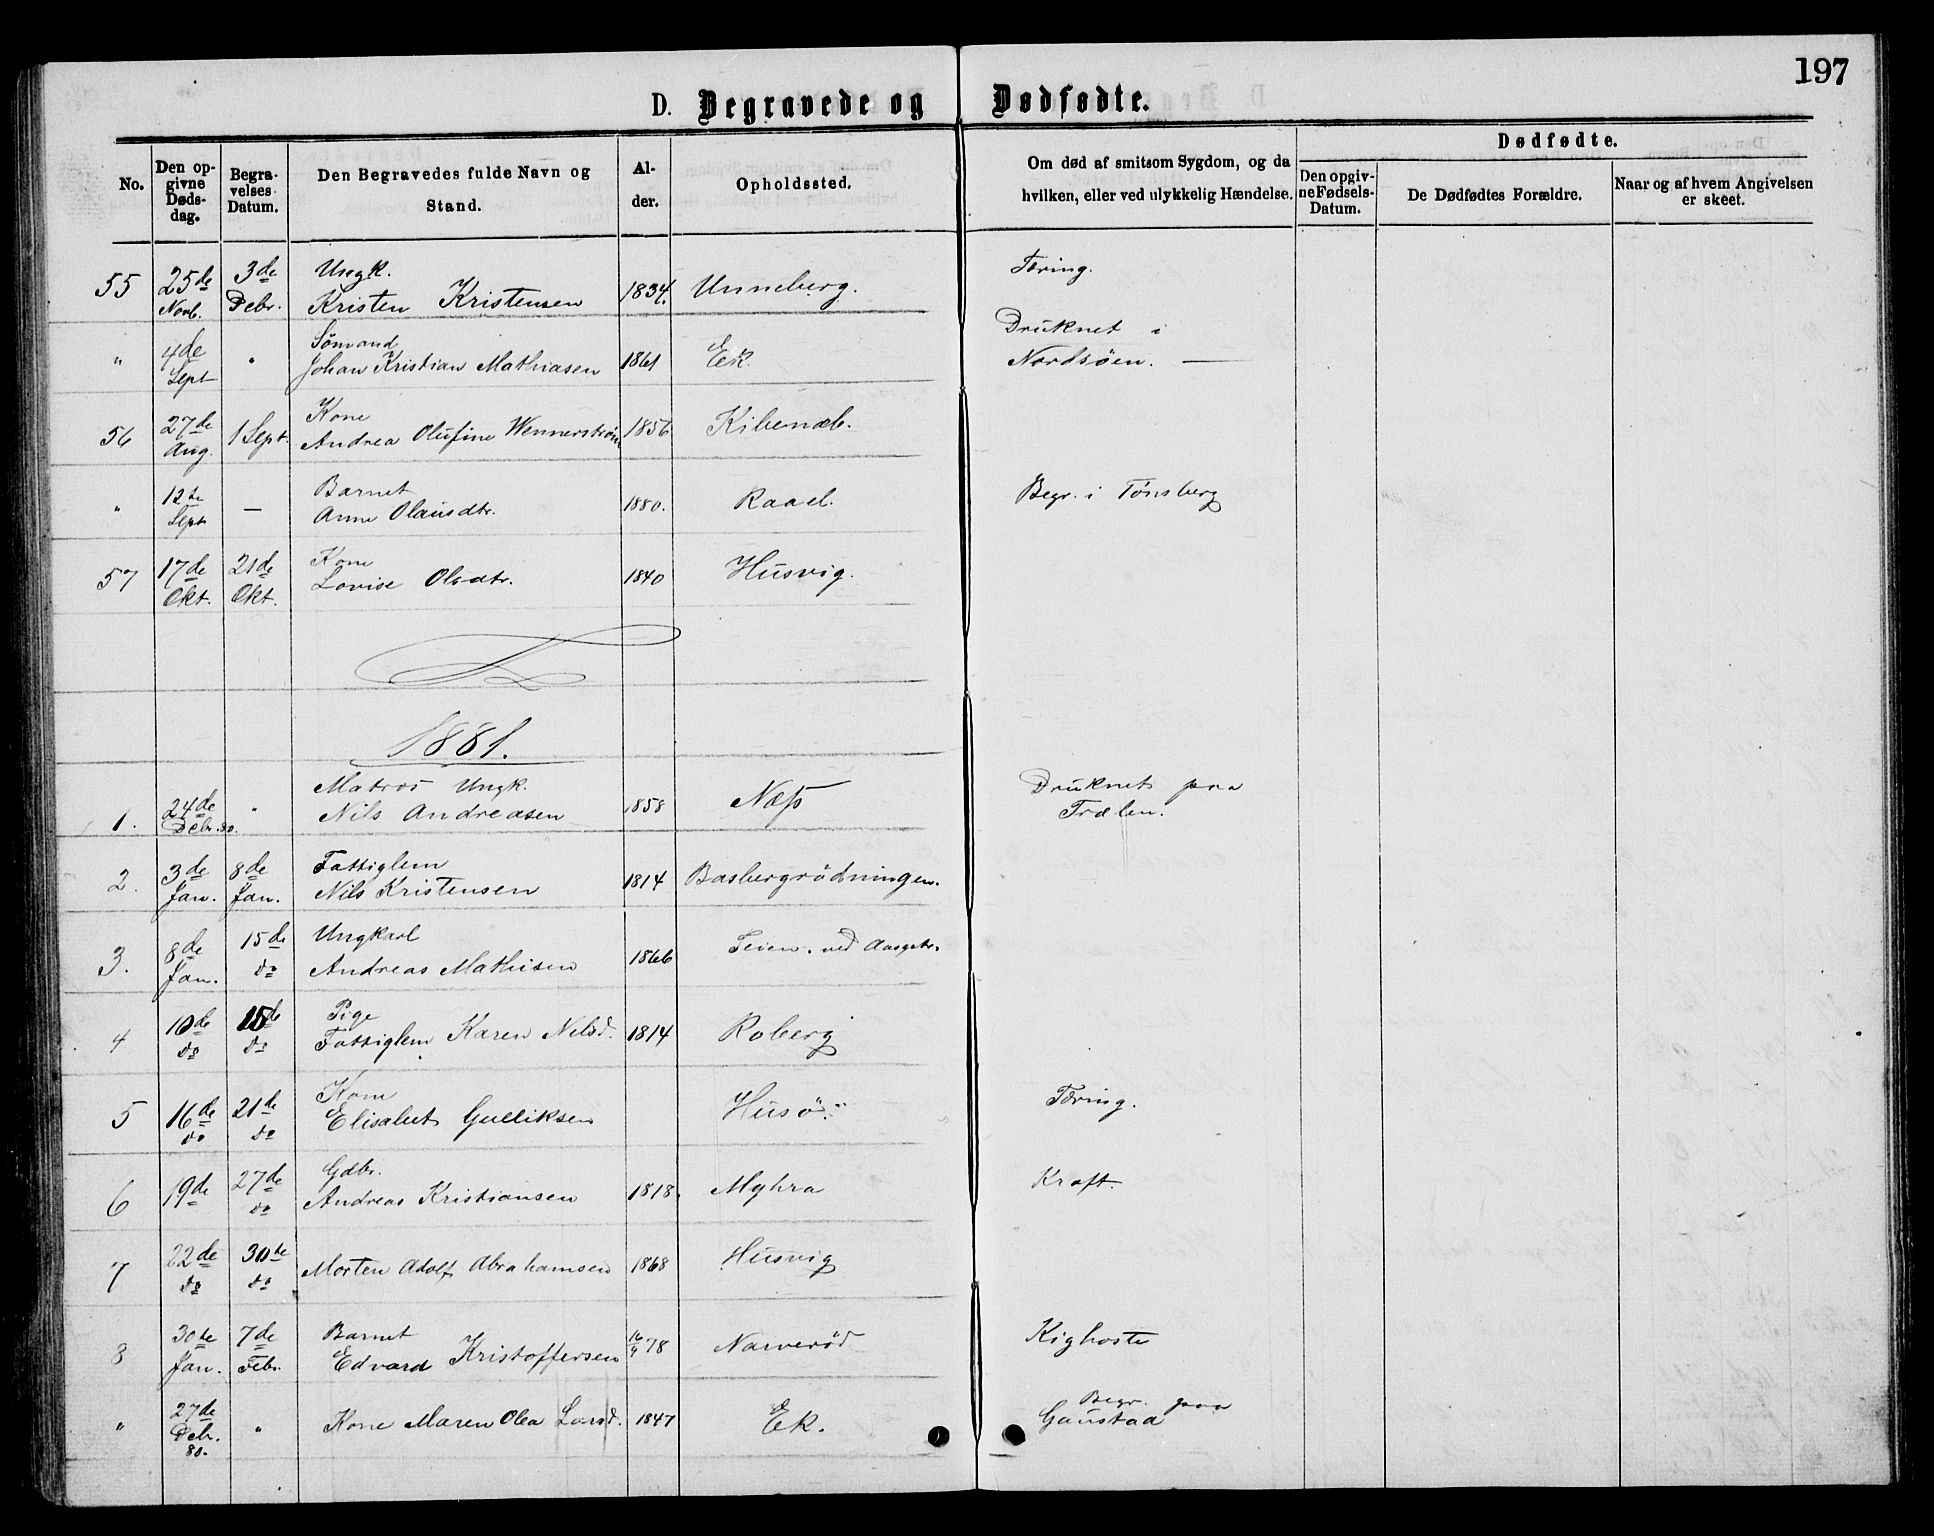 197
D. Begravede og Dødfødte.
No.
Den opgivne Dødsdag.
Begravelses Datum.
Den Begravedes fulde Navn og Stand.
Alder.
Opholdssted.
Om død af smitsom Sygdom, og da hvilken, eller ved ulykkelig Hændelse.
Dødfødte.
Den opgivne Fødsels-Datum.
De Dødfødtes Forældre.
Naar og af hvem Angivelsen er skeet.
55 25de Novb. 3de Debr. Ungk. Kristen Kristensen 1834. Unneberg. Tæring.
" 4de Sept " Sømand Johan Kristian Mathiasen 1861 Ek. Druknet i Nordsöen. —
56 27de Aug. 1 Sept. Kone Andrea Olufine Wennerström 1856 Kibenæb. 
" 12te Sept — Barnet Anne Olausdtr. 1880. Raael. Begr. i Tönsberg
57 17de Okt. 21de Okt. Kone Lovise Olsdtr. 1840 Husvig.
1881.
1. 24de Debr. 80. " Matros Ungk. Nils Andreasen 1858 Næss Druknet paa Trælen.
2. 3de Jan. 8de Jan. Fattiglem Nils Kristensen 1814 Basbergrödningen.
3. 8de Jan. 15de do Ungkarl Andreas Mathisen 1866 Teien. ved Aasgstr.
4 10de do 15de do Pige Fattiglem Karen Nilsd. 1814 Roberg
5 16de do 21de do Kone Elisabet Gulliksen Husö. Tæring.
6 19de 27de do Gdbr. Andreas Kristiansen 1818. Myhra Kræft.
7 22de do 30te do Morten Adolf Abrahamsen 1868 Husvig
8 30te Jan. 7de Febr. Barnet Edvard Kristoffersen 16/9 78 Narveröd Kighoste
" 27de Debr. 80. " Kone Maren Olea Larsd. 1847 Ek. Begr. paa Gaustad